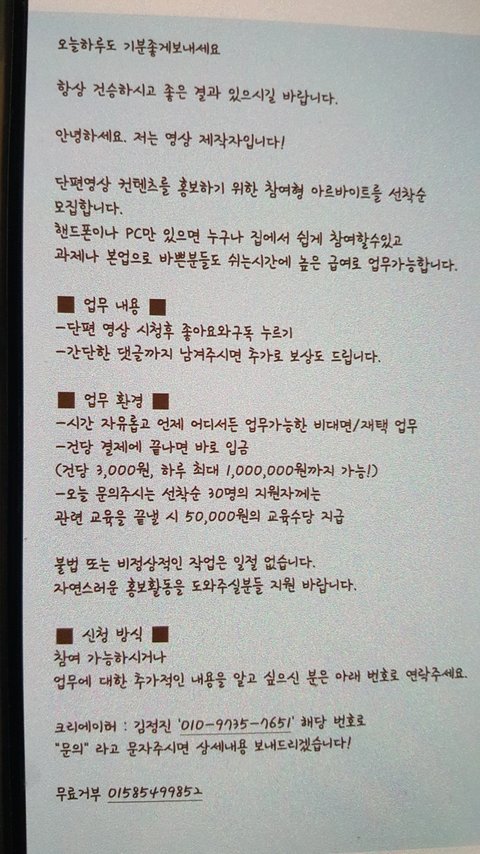 오늘하루도 기분좋게보내세요
항상 건승하시고 좋은 결과 있으시길 바랍니다.
안녕하세요. 저는 영상 제작자입니다!
단편영상 컨텐츠를 홍보하기 위한 참여형 아르바이트를 선착순
모집합니다.
핸드폰이나 PC만 있으면 누구나 집에서 쉽게 참여할수있고
과제나 본업으로 바쁜분들도 쉬는시간에 높은 급여로 업무가능합니다.
■ 업무 내용 ■
-단편 영상 시청후 좋아요와구독 누르기
-간단한 댓글까지 남겨주시면 추가로 보상도 드립니다.
■ 업무 환경 ■
-시간 자유롭고 언제 어디서든 업무가능한 비대면/재택 업무
-건당 결제에 끝나면 바로 입금
(건당 3,000원, 하루 최대 1,000,000원까지 가능!)
-오늘 문의주시는 선착순 30명의 지원자께는
관련 교육을 끝낼 시 50,000원의 교육수당 지급
불법 또는 비정상적인 작업은 일절 없습니다.
자연스러운 홍보활동을 도와주실분들 지원 바랍니다.
■ 신청 방식 ■
참여 가능하시거나
업무에 대한 추가적인 내용을 알고 싶으신 분은 아래 번호로 연락주세요.
크리에이터 : 김정진 '010-9735-7651' 해당 번호로
"문의" 라고 문자주시면 상세내용 보내드리겠습니다!
무료거부 01585499852